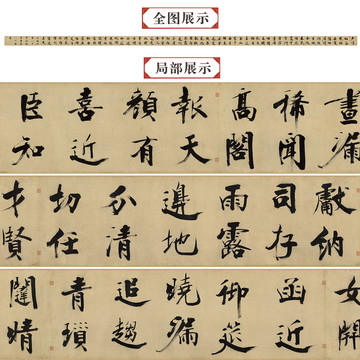 全图展示
局部展示
晝漏
稀聞
高閣
報天
顏有
喜近
臣知
獻納
司存
雨露
邊地
分清
切任
才賢
女開
函近
御筵
曉漏
追趨
青瑣
闥晴